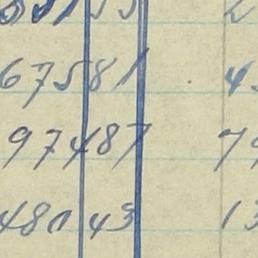 67581 4
97487 79
48043 13